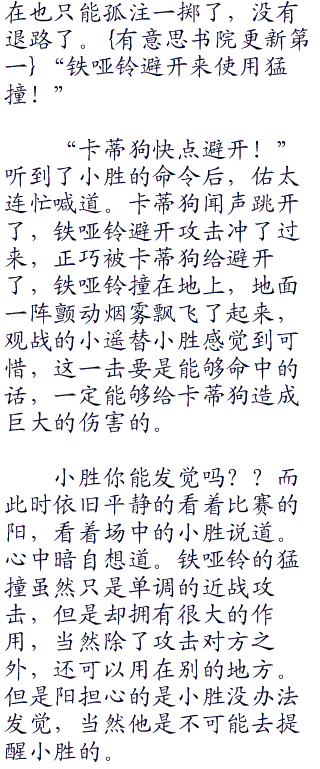 在也只能孤注一掷了，没有
退路了。{有意思书院更新第
一}“铁哑铃避开来使用猛
撞！”
“卡蒂狗快点避开！”
听到了小胜的命令后，佑太
连忙喊道。卡蒂狗闻声跳开
了，铁哑铃避开攻击冲了过
来，正巧被卡蒂狗给避开
了，铁哑铃撞在地上，地面
一阵颤动烟雾飘飞了起来，
观战的小遥替小胜感觉到可
惜，这一击要是能够命中的
话，一定能够给卡蒂狗造成
巨大的伤害的。
小胜你能发觉吗？？而
此时依旧平静的看着比赛的
阳，看着场中的小胜说道。
心中暗自想道。铁哑铃的猛
撞虽然只是单调的近战攻
击，但是却拥有很大的作
用，当然除了攻击对方之
外，还可以用在别的地方。
但是阳担心的是小胜没办法
发觉，当然他是不可能去提
醒小胜的。